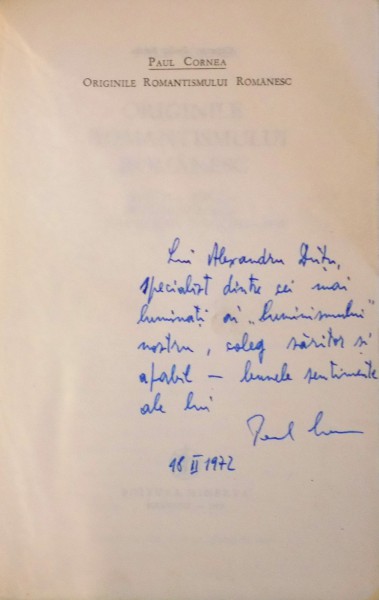 PAUL CORNEA
ORIGINILE ROMANTISMULUI ROMÂNESC
Lui Alexandru Duțu,
specialist dintre cei mai
luminați ai „luminismului"
nostru, coleg săritor și
afabil – bunele sentimente
ale lui
Paul
18 II 1972